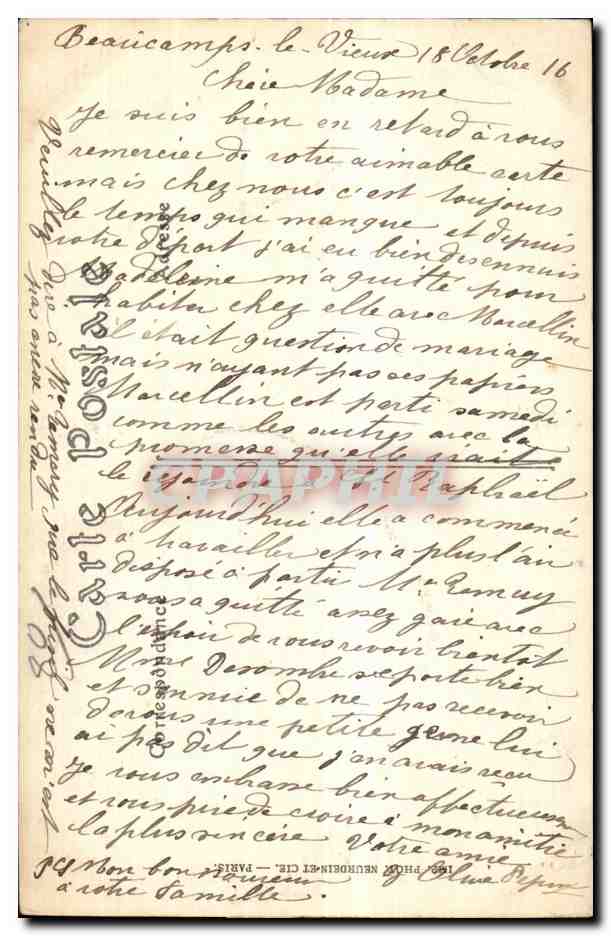 Beaucamps-le-Vieux 18 Octobre 16
Chère Madame
Je suis bien en retard à vous
remercier de votre aimable carte
mais chez nous c'est toujours
le temps qui manque et depuis
votre départ j'ai eu bien des ennuis
Madeleine m'a quitté pour
habiter chez elle avec Marcellin
il était question de mariage
mais n'ayant pas ses papiers
Marcellin est parti samedi
comme les autres avec la
promesse qu'elle irait
le rejoindre à St Raphaël
Aujourd'hui elle a commencé
à travailler et n'a plus l'air
disposé à partir Me
vous a quitté assez gaie avec
l'espoir de vous revoir bientôt
Mme se porte bien
et s'ennuie de ne pas recevoir
de vous une petite je ne lui
ai pas dit que j'en avais reçu
Je vous embrasse bien affectueusem
et vous prie de croire à mon amitié
la plus sincère Votre amie
PS Mon bon souvenir
à votre famille.
Veuillez dire à que le n'est
pas encore rendu
Carte postale
Correspondance
Adresse
IMP. PHOT. NEURDEIN ET CIE. — PARIS.
CPAPHIL